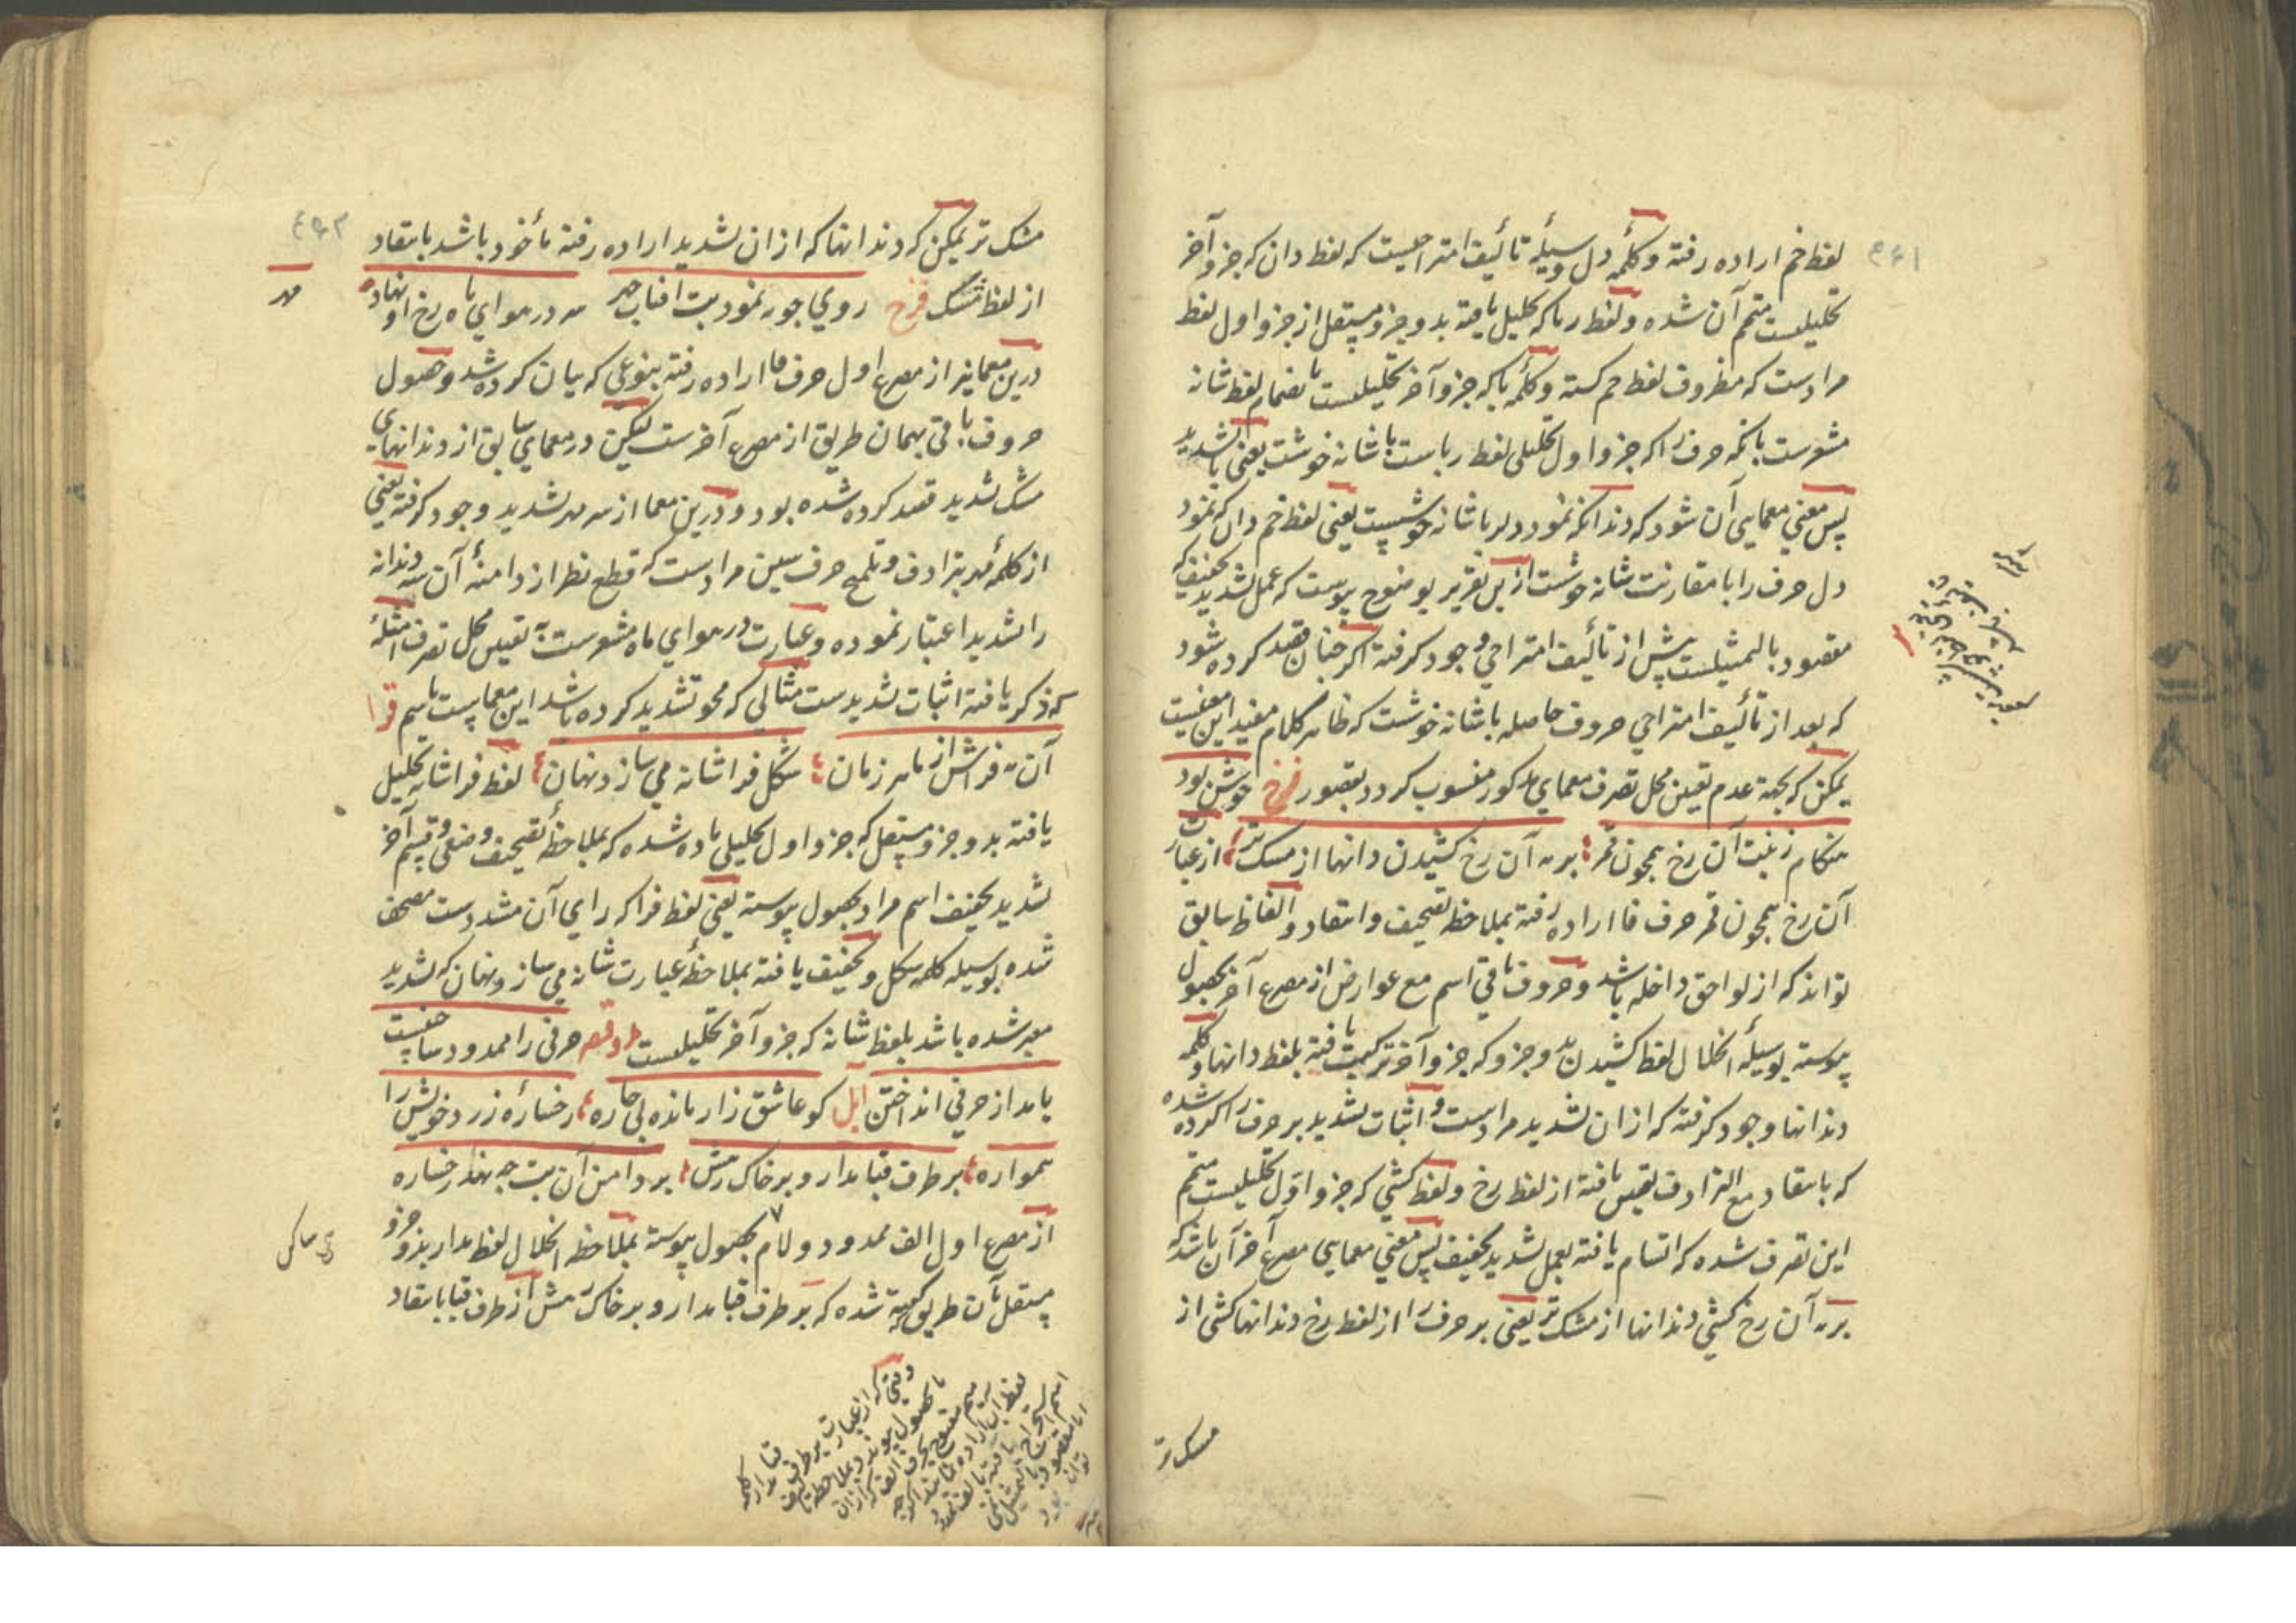 لفظ خم اراده رفته و کلمهٔ دل وسیلهٔ تألیف امتزاجیست که لفظ دان که جزو آخر
تحلیلیست متمم آن شده و لفظ ربا که تحلیل یافته بدو جزو مستقل از جزو اول لفظ
مرادست که مظروف لفظ خم کشته و کلمهٔ با که جزو آخر تحلیلیست بانضمام لفظ شانه
مشعرست بانکه حرف را که جزو اول تحلیلی لفظ رباست با شانه خوشت یعنی با تشدید
پس معنی معمایی آن شود که دندانکه نمود دلربا شانه خوشست یعنی لفظ خم دان که نمود
دل حرف را با مقارنت شانه خوشت ازین تقریر بوضوح پیوست که عمل تشدید تخفیف که
مقصود بالتمثیلست پیش از تألیف امتزاجی وجود کرفته اکر چنان قصد کرده شود
که بعد از تألیف امتزاجی حروف حاصله با شانه خوشت که ظاهر کلام مفید این معنیست
یمکن که بجهة عدم تعین محل تصرف معمای مذکور منسوب کردد بقصور فرخ خوش بود
هنکام زینت آن رخ همچون قمر بر مه آن رخ کشیدن دانها از مشک تر از عبارت
آن رخ همچون قمر حرف فا اراده رفته بملاحظه تصحیف و انتقاد و الفاظ سابق
تواند که از لواحق داخله باشد و حروف باقی اسم مع عوارض از مصرع آخر بحصول
پیوسته بوسیلهٔ انحلال لفظ کشیدن بدو جزو که جزو آخر ترکیب یافته بلفظ دانها و کلمه
دندانها وجود کرفته که ازان تشدید مرادست و اثبات تشدید بر حرف را کرده شده
که بانتقاد مع الترادف تعیین یافته از لفظ رخ و لفظ کشی که جزو اول تحلیلیست متمم
این تصرف شده که اتسام یافته بعمل تشدید تخفیف پس معنی معمایی مصرع آخر آن باشد که
بر مه آن رخ کشی دندانها از مشک تر یعنی بر حرف را از لفظ رخ دندانها کشی از
مشک تر
مشک تر یمکن کردندانها که ازان تشدید اراده رفته مأخوذ باشد بانتقاد
از لفظ مشک فرخ روی جو نمود بت افتاب چهر مه در هوای ماه رخ او نهاد
مهر
درین معما نیز از مصرع اول حرف فا اراده رفته بنوعی که بیان کرده شد و حصول
حروف باقی بهمان طریق از مصرع آخرست لیکن در معمای سابق از دندانهای
مشک تشدید قصد کرده شده بود و درین معما از سر مهر تشدید وجود کرفته یعنی
از کلمهٔ مهر بترادف و تلمیح حرف سین مرادست که قطع نظر از دامنهٔ آن سه دندانه
را تشدید اعتبار نموده و عبارت در هوای ماه مشعرست به تعیین محل تصرف امثلهٔ
که ذکر یافته اثبات تشدیدست مثالی که محو تشدید کرده باشد این معماست باسم فرا
آن مه فراش از ماهر زمان شکل فراشانه می سازد نهان لفظ فراشانه تحلیل
یافته بدو جزو مستقل که جزو اول تحلیلی ماده شده که بملاحظهٔ تصحیف وضعی و قسم آخر
تشدید تخفیف اسم مراد بحصول پیوسته یعنی لفظ فرا که رای آن مشددست مصحف
شده بوسیله کلمه شکل و تخفیف یافته بملاحظهٔ عبارت شانه می سازد نهان که تشدید
معبر شده باشد بلفظ شانه که جزو آخر تحلیلیست مد و قصر حرفی را ممدود ساختنست
یا مد از حرفی انداختن ایل کو عاشق زار مانده بی چاره رخسارهٔ زرد خویش را
همواره بر طرف قبا مدار و بر خاک رهش بر دامن آن بت چه نهد رخساره
از مصرع اول الف ممدود و لام بحصول پیوسته بملاحظه انحلال لفظ مدار بدو جزو
مستقل بآن طریق که تنبیه شده که بر طرف قبا مدار و بر خاک رهش از طرف قبا بانتقاد